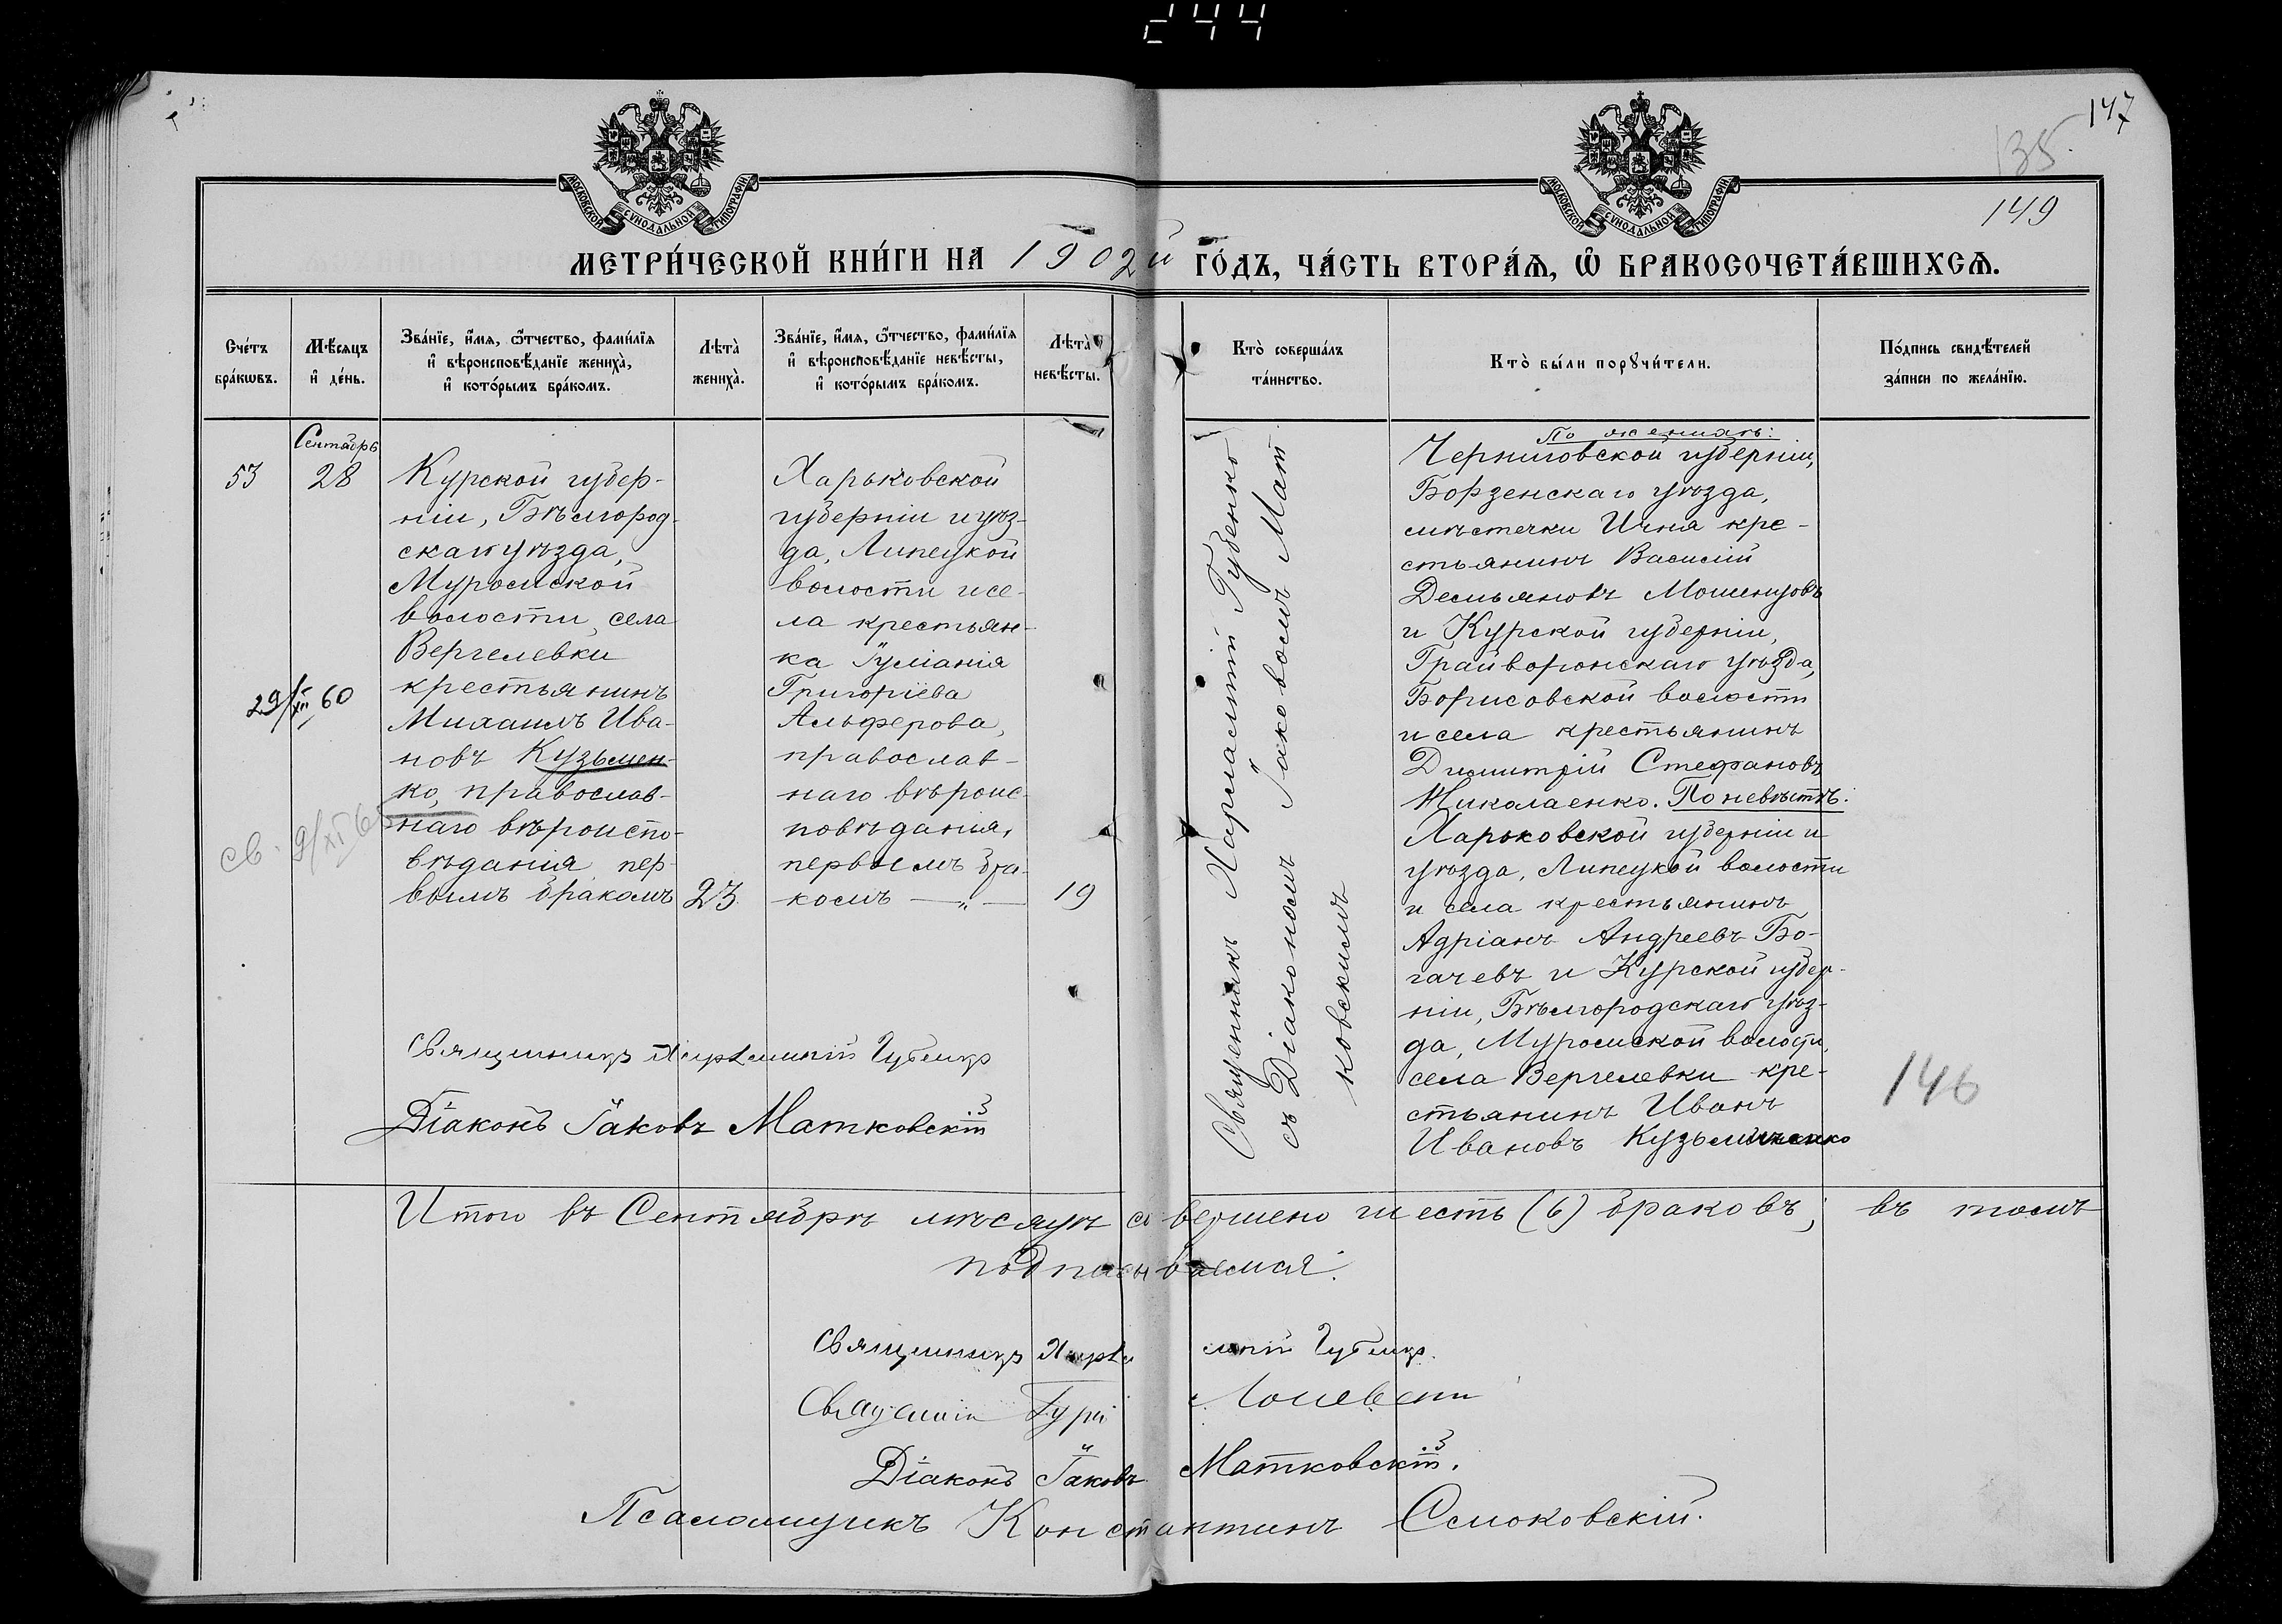 244
147
135
149
МОСКОВСКОЙ СѴНОДАЛЬНОЙ ТИПОГРАФІИ
МОСКОВСКОЙ СѴНОДАЛЬНОЙ ТИПОГРАФІИ
МЕТРИ́ЧЕСКОЙ КНИ́ГИ НА 1902й ГО́ДЪ, ЧА́СТЬ ВТОРА́Ѧ, Ѡ҆ БРАКОСОЧЕТА́ВШИХСѦ.
Сче́тъ
бра́кѡвъ.
Мѣ́сѧцъ
и҆ де́нь.
Зва́нїе, и҆́мѧ, ѻ҆́тчество, фами́лїѧ
и҆ вѣроисповѣ́данїе жениха̀,
и҆ кото́рымъ бра́комъ.
Лѣта̀
жениха̀.
Зва́нїе, и҆́мѧ, ѻ҆́тчество, фами́лїѧ
и҆ вѣроисповѣ́данїе невѣ́сты,
и҆ кото́рымъ бра́комъ.
Лѣта̀
невѣ́сты.
Кто̀ соверша́лъ
та́инство.
Кто̀ бы́ли порꙋчи́тели.
По́дпись свидѣ́телей
за́писи по жела́нїю.
53
Сентябрь
28
Курской губер-
ніи, Бѣлгород-
скаго уѣзда,
Муромской
волости, села
Вергелевки
крестьянинъ
Михаилъ Ива-
новъ Кузьмен-
ко, православ-
наго вѣроиспо-
вѣданія, пер-
вымъ бракомъ
23
29/XII 60
св. 9/XI 6
Харьковской
губерніи и уѣз-
да, Липецкой
волости и се-
ла крестьян-
ка Іуліанія
Григоріева
Алферова,
православ-
наго вѣроис-
повѣданія,
первымъ бра-
комъ — „ —
19
Священникъ Харлампій Губенко
съ Діакономъ Іаковомъ Мат
ковскимъ
По женихѣ:
Черниговской губерніи,
Борзенскаго уѣзда,
мѣстечки Ичня кре-
стьянинъ Василій
Демьяновъ Мошенцовъ
и Курской губерніи,
Грайворонскаго уѣзда,
Борисовской волости
и села крестьянинъ
Димитрій Стефановъ
Николаенко. По невѣстѣ:
Харьковской губерніи и
уѣзда, Липецкой волости
и села крестьянинъ
Адріанъ Андреевъ Бо-
гачевъ и Курской губер-
ніи, Бѣлгородскаго уѣз-
да, Муромской волости,
села Вергелевки кре-
стьянинъ Иванъ
Ивановъ Кузьминко
146
Священникъ Харлампій Губенко
Діаконъ Іаковъ Матковскій
Итого въ Сентябрѣ мѣсяцѣ совершено шесть (6) браковъ; въ томъ
подписываемся:
Священникъ Харлампій Губенко
Священникъ Гурій
Діаконъ Іаковъ Матковскій.
Псаломщикъ Константинъ Смоковскій.